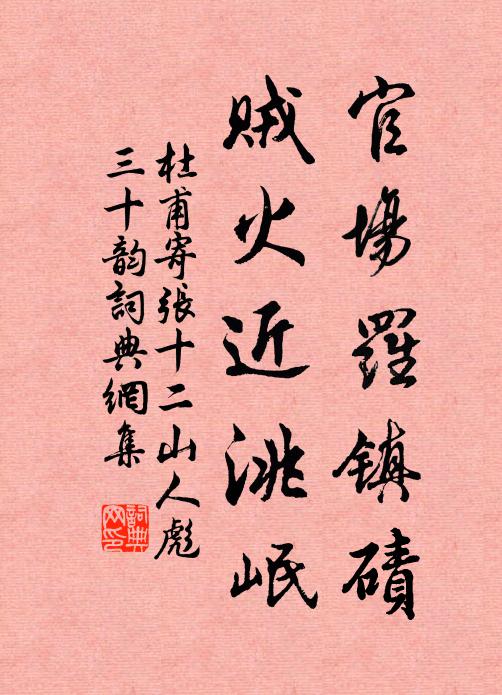 官場羅鎮磧
賊火近洮岷
杜甫寄張十二山人彪
三十韵詞典網集
詞典網印